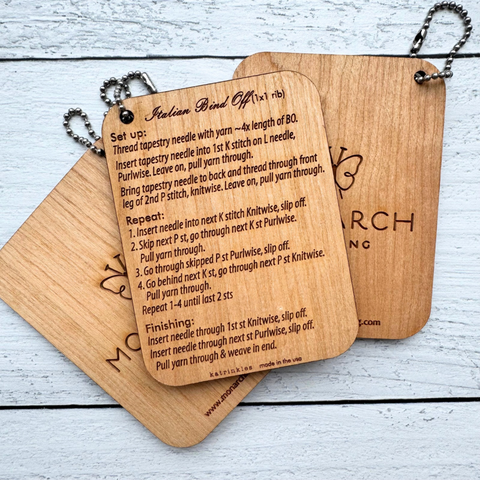 Italian Bind Off (1x1 rib)
Set up:
Thread tapestry needle with yarn ~4x length of BO.
Insert tapestry needle into 1st K stitch on L needle,
Purlwise. Leave on, pull yarn through.
Bring tapestry needle to back and thread through front
leg of 2nd P stitch, knitwise. Leave on, pull yarn through.
Repeat:
1. Insert needle into next K stitch Knitwise, slip off.
2. Skip next P st, go through next K st Purlwise.
Pull yarn through.
3. Go through skipped P st Purlwise, slip off.
4. Go behind next K st, go through next P st Knitwise.
Pull yarn through.
Repeat 1-4 until last 2 sts
Finishing:
Insert needle through 1st st Knitwise, slip off.
Insert needle through next st Purlwise, slip off.
Pull yarn through & weave in end.
katrinkles made in the usa
ARCH
NG
.com
MO
www.monar